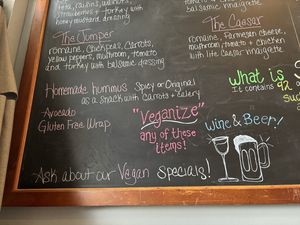 Feta, raisins, walnuts,
strawberries + turkey with
honey mustard dressing
balsamic vinaigrette
The Jumper
romaine, chickpeas, carrots,
yellow peppers, mushroom, tomato
and turkey with balsamic dressing
The Caesar
romaine, Parmesan cheese,
mushroom, tomato + chicken
with lite Caesar vinaigrette
Homemade hummus Spicy or Original
as a snack with carrots + celery
Avocado
Gluten Free Wrap
"Veganize"
any of these
items!
what is
It contains 92
Wine & Beer!
Ask about our Vegan Specials!